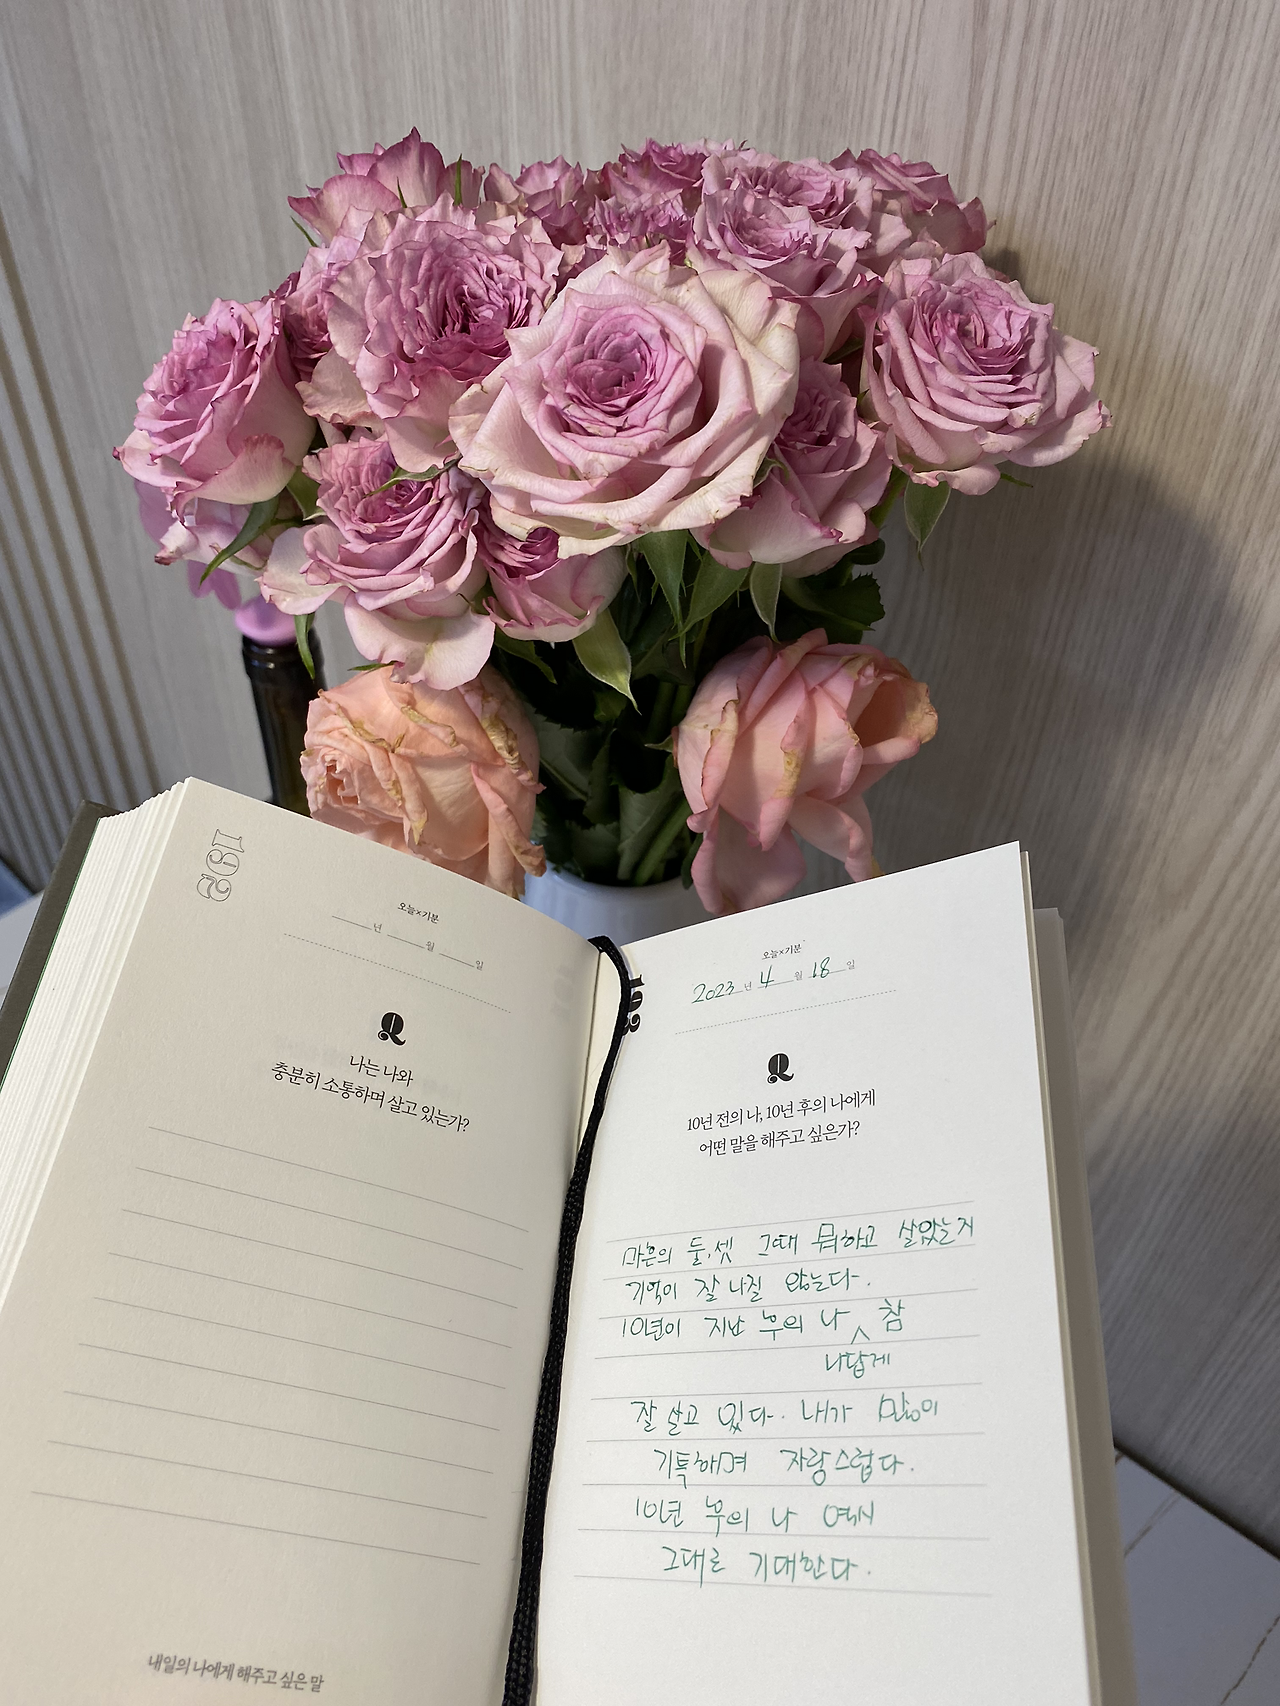 192
오늘×기분
년 월 일
Q
나는 나와
충분히 소통하며 살고 있는가?
내일의 나에게 해주고 싶은 말
193
오늘×기분
2023 년 4 월 18 일
Q
10년 전의 나, 10년 후의 나에게
어떤 말을 해주고 싶은가?
마흔의 둘,셋 그때 뭐하고 살았는지
기억이 잘 나질 않는다.
10년이 지난 후의 나 ^ 참
나답게
잘 살고 있다. 내가 많이
기특하며 자랑스럽다.
10년 후의 나 역시
그대로 기대한다.